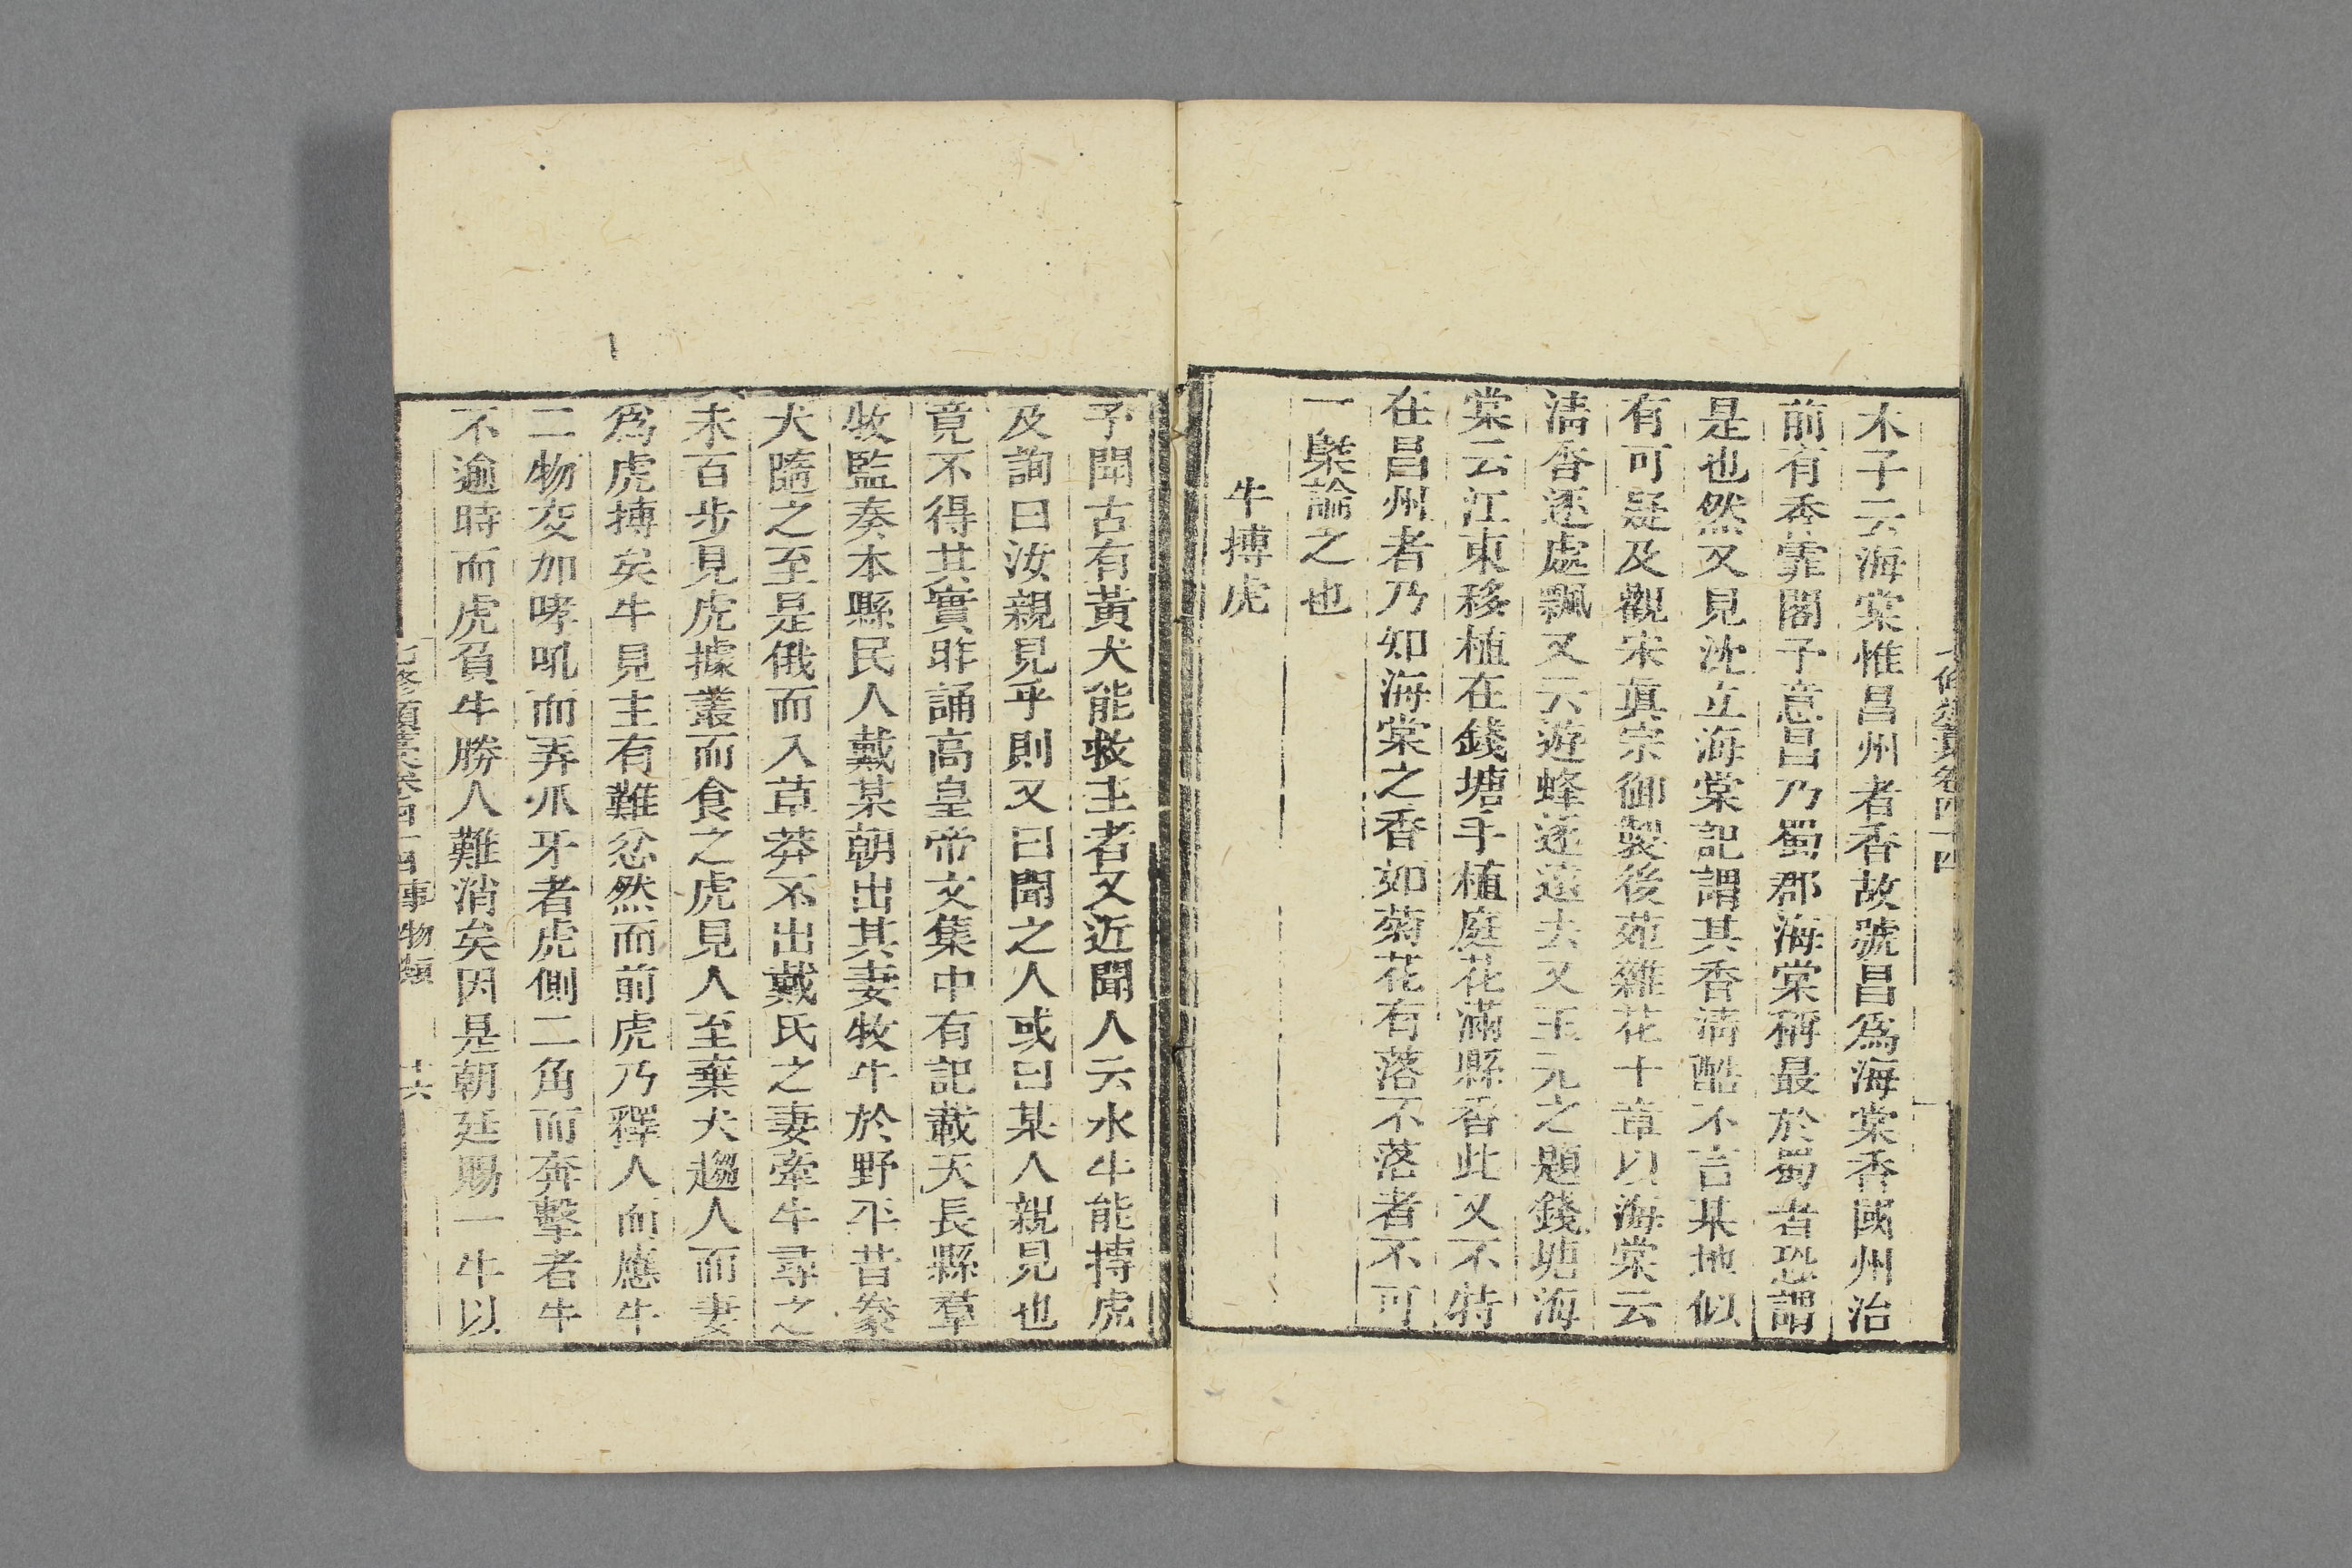 木子云海棠惟昌州者香故號昌爲海棠香國州治
前有香霏閣予意昌乃蜀郡海棠稱最於蜀者恐謂
是也然又見沈立海棠記謂其香清酷不言某地似
有可疑及觀宋眞宗御製後苑雜花十章以海棠云
清香逐處飄又云遊蜂逐遠去又王元之題錢塘海
棠云江東移植在錢塘手植庭花滿縣香此又不特
在昌州者乃知海棠之香如菊花有落不落者不可
一槩論之也
牛搏虎
予聞古有黃犬能救主者又近聞人云水牛能搏虎
及詢曰汝親見乎則又曰聞之人或曰某人親見也
竟不得其實昨誦高皇帝文集中有記載天長縣羣
牧監奏本縣民人戴某朝出其妻牧牛於野平昔豢
犬隨之至是俄而入草莽不出戴氏之妻牽牛尋之
未百步見虎據叢而食之虎見人至棄犬趨人而妻
爲虎搏矣牛見主有難忿然而前虎乃釋人而應牛
二物交加哮吼而弄爪牙者虎側二角而奔擊者牛
不逾時而虎負牛勝人難消矣因是朝廷賜一牛以
七修類藁卷四十四事物類 十六